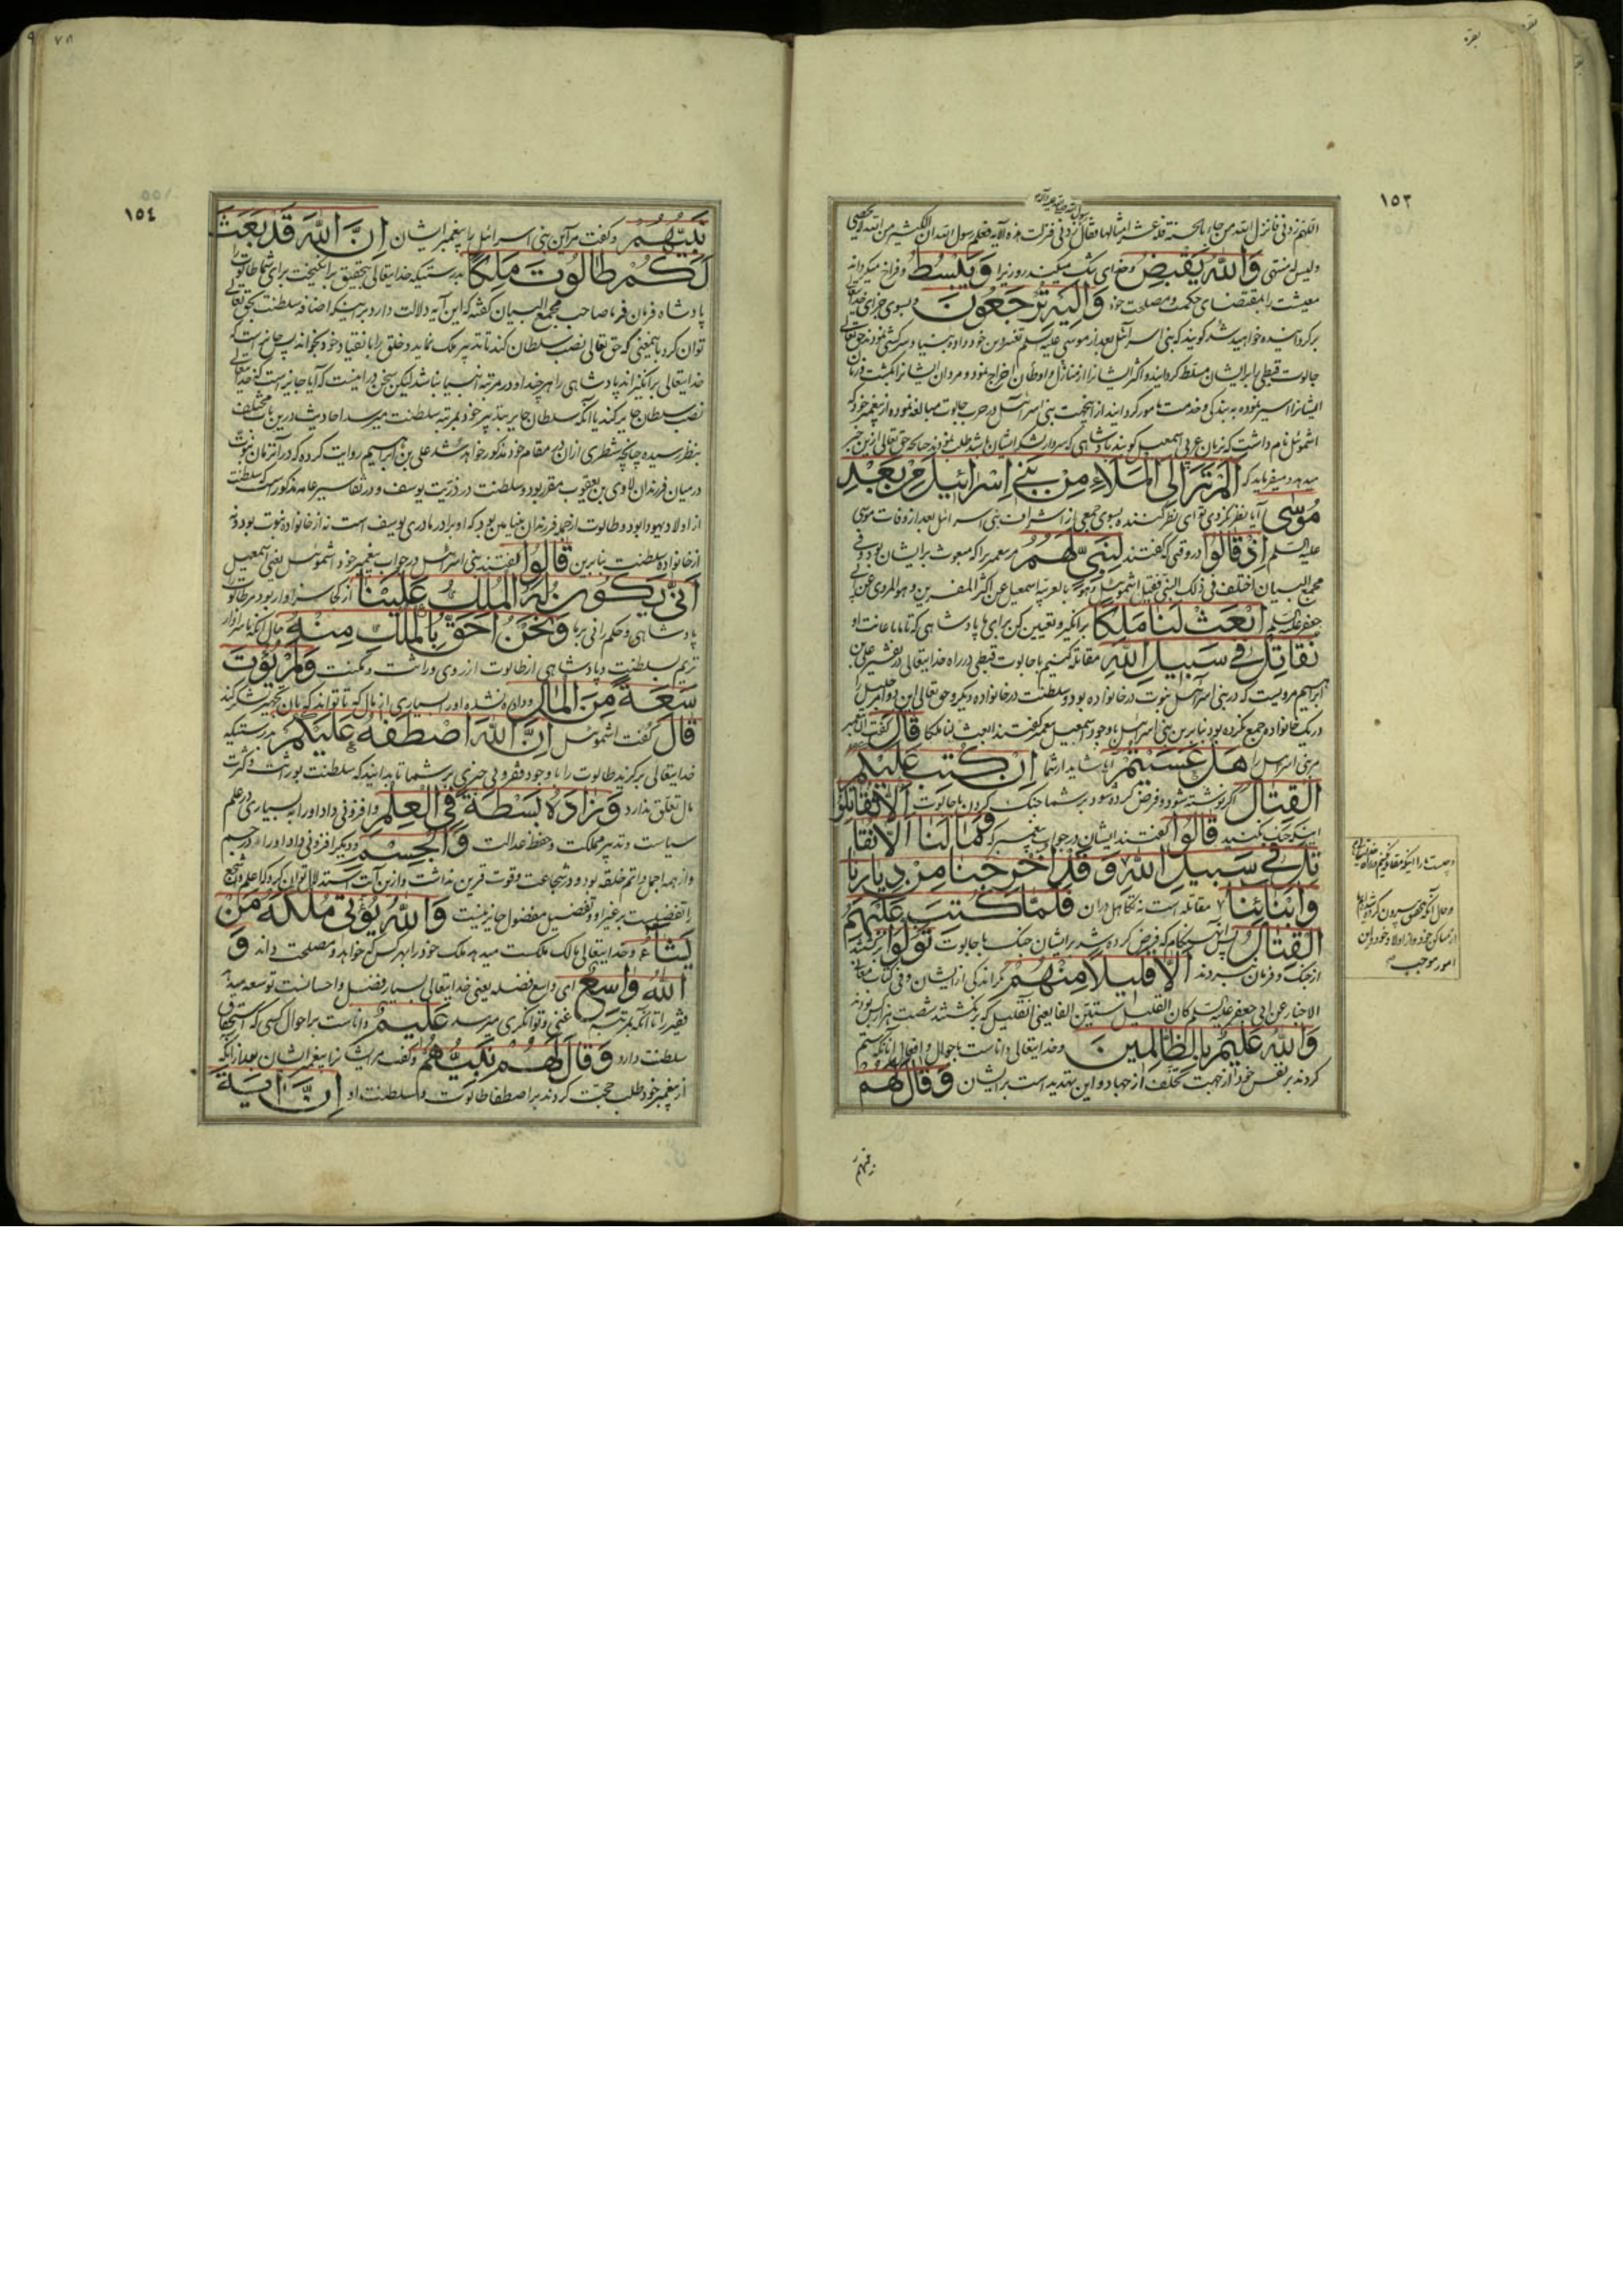 بقره
١٥٣
رسول الله صلی الله علیه و آله
اللهم زدنی فانزل الله من جاء بالحسنة فله عشر امثالها فقال زدنی فنزلت هذه الآیة فعلم رسول الله ان الکثیر من الله لا یحصی
ولیس له منتهی وَاللّٰهُ یَقْبِضُ وخدای تنگ میکند روزیرا وَیَبْسُطُ وفراخ میکرداند
معیشت را بمقتضای حکمت ومصلحت خود وَاِلَیْهِ تُرْجَعُونَ وبسوی جزای خدایتعالی
برکردانیده خواهید شد کویند که بنی اسرائیل بعد از موسی علیه السلم تغییر دین خود داده بنیاد سرکشی نمودند حق تعالی
جالوت قبطی را بر ایشان مسلط کردانید و اکثر ایشانرا از منازل و اوطان اخراج نمود و مردان ایشانرا بکشت و زنان
ایشانرا اسیر نموده به بندکی و خدمت مامور کردانید از اینجهت بنی اسرائیل در حرب جالوت مبالغه نموده از پیغمبر خود که
اشموئیل نام داشت که بزبان عربی اسمعیل کویند پادشاهی که سردار لشکر ایشان باشد طلب نمودند چنانچه حق تعالی از این خبر
میدهد و میفرماید که اَلَمْ تَرَ اِلَی الْمَلَاءِ مِنْ بَنِی اِسْرَائِیلَ مِنْ بَعْدِ
مُوسٰی آیا نظر نکردی تو ای نظر کننده بسوی جمعی از اشراف بنی اسرائیل بعد از وفات موسی
علیه السلم اِذْ قَالُوا در وقتی که کفتند لِنَبِیٍّ لَهُمُ مر پیغمبر را که مبعوث بر ایشان بود و فی
مجمع البیان اختلف فی ذلک النبی فقیل اشموئیل وهو بالعربیة اسمعیل عن اکثر المفسرین وهو المروی عن ابی
جعفر علیه السلم اِبْعَثْ لَنَا مَلِکًا برانکیز وتعیین کن برای ما پادشاهی که تا با ما عانت او
نُقَاتِلْ فِی سَبِیلِ اللّٰهِ مقاتله کنیم با جالوت قبطی در راه خدایتعالی در تفسیر علی بن
ابراهیم مرویست که در بنی اسرائیل نبوت در خانواده بود و سلطنت در خانواده دیکر و حق تعالی این دو امر جلیل را
در یک خانواده جمع نکرده بود بنابرین بنی اسرائیل با وجود اسمعیل پیغمبر کفتند ابعث لنا ملکا قَالَ کفت آن پیغمبر
مر بنی اسرائیل را هَلْ عَسَیْتُمْ آیا شاید از شما اِنْ کُتِبَ عَلَیْکُمُ
الْقِتَالُ اکر نوشته شود و فرض کرده شود بر شما جنک کردن با جالوت اَلَّا تُقَاتِلُوا
اینکه جنک نکنید قَالُوا کفتند ایشان در جواب پیغمبر که وَمَا لَنَا اَلَّا نُقَا
تِلَ فِی سَبِیلِ اللّٰهِ وَقَدْ اُخْرِجْنَا مِنْ دِیَارِنَا
وَاَبْنَائِنَا مقاتله است نه تکاهل در آن فَلَمَّا کُتِبَ عَلَیْهِمُ
الْقِتَالُ پس آنهنکام که فرض کرده شد بر ایشان جنک با جالوت تَوَلَّوْا برکشتند
از جنک و فرمان نبردند اِلَّا قَلِیلًا مِنْهُمْ مکر اندکی از ایشان و فی کتاب معانی
الاخبار عن ابی جعفر علیه السلم کان القلیل ستین الفا یعنی آنقلیل که برنکشتند شصت هزار کس بودند
وَاللّٰهُ عَلِیمٌ بِالظَّالِمِینَ وخدایتعالی داناست باحوال و افعال آنانکه ستم
کردند بر نفس خود از جهت تخلف از جهاد و این تهدید است بر ایشان وَقَالَ لَهُمْ
وچیست ما را اینکه مقاتله نکنیم در راه خدایتعالی
و حال آنکه بتحقیق بیرون کرده شده ایم
از مساکن خود و از اولاد خود و این
امور موجب
نبیهم
٧٨
١٥٤
نَبِیُّهُمْ و کفت مر آن بنی اسرائیل را پیغمبر ایشان اِنَّ اللّٰهَ قَدْ بَعَثَ
لَکُمْ طَالُوتَ مَلِکًا بدرستیکه خدایتعالی بتحقیق برانکیخت برای شما طالوت را
پادشاه فرمان فرما صاحب مجمع البیان کفته که این آیه دلالت دارد بر اینکه اضافه سلطنت بحق تعالی
توان کرد باینمعنی که حق تعالی نصب سلطان کند تا تدبیر ملک نماید و خلق را بانقیاد خود بخواند پس جایز است که
خدایتعالی برانکیزاند پادشاهی را هر چند او در مرتبه انبیا نباشد لیکن سخن در اینست که آیا جایز است که خدایتعالی
نصب سلطان جایر کند یا آنکه سلطان جایر بتدبیر خود بمرتبه سلطنت میرسد احادیث درین باب مختلف
بنظر رسیده چنانچه شطری از ان در مقام خود مذکور خواهد شد علی بن ابراهیم روایت کرده که در آنزمان نبوت
در میان فرزندان لاوی بن یعقوب مقرر بود و سلطنت در ذریت یوسف و در تفاسیر عامه مذکور است که سلطنت
از اولاد یهودا بود و طالوت از جمله فرزندان بنیامین بود که او برادر مادری یوسف است نه از خانواده نبوت بود و نه
از خانواده سلطنت بنابرین قَالُوا کفتند بنی اسرائیل در جواب پیغمبر خود اشموئیل یعنی اسمعیل
اَنّٰی یَکُونُ لَهُ الْمُلْکُ عَلَیْنَا از کجا سزاوار بود مر طالوت را
پادشاهی و حکم رانی بر ما وَنَحْنُ اَحَقُّ بِالْمُلْکِ مِنْهُ و حال آنکه ما سزاوار
تریم بسلطنت و پادشاهی از طالوت از روی وراثت و مکنت وَلَمْ یُؤْتَ
سَعَةً مِنَ الْمَالِ و داده نشده او را بسیاری از مال که تا تواند که بان تجهیز لشکر کند
قَالَ کفت اشموئیل اِنَّ اللّٰهَ اصْطَفٰهُ عَلَیْکُمْ بدرستیکه
خدایتعالی برکزید طالوت را با وجود فقر و بی چیزی بر شما تا بدانید که سلطنت بوراثت و کثرت
مال تعلق ندارد وَزَادَهُ بَسْطَةً فِی الْعِلْمِ و افزونی داد او را به بسیاری در علم
سیاست و تدبیر مملکت و حفظ عدالت وَالْجِسْمِ و دیکر افزونی داد او را در جسم
و از همه اجمل و اتم خلقه بود و در شجاعت و قوت قرین نداشت و ازین آیت استدلال توان کرد که اعلم و اشجع
را تفضیلست بر غیر او و تفضیل مفضول جایز نیست وَاللّٰهُ یُؤْتِی مُلْکَهُ مَنْ
یَشَاءُ و خدایتعالی مالک ملکست میدهد ملک خود را بهر کس که خواهد و مصلحت داند وَ
اللّٰهُ وَاسِعٌ ای واسع فضله یعنی خدایتعالی بسیار فضل و احسانست توسعه میدهد
فقیر را تا آنکه بمرتبه غنی و توانکری میرسد عَلِیمٌ داناست بر احوال کسی که استحقاق
سلطنت دارد وَقَالَ لَهُمْ نَبِیُّهُمْ و کفت مر ایشانرا پیغمبر ایشان بعد از آنکه
از پیغمبر خود طلب حجت کردند بر اصطفا طالوت و سلطنت او اِنَّ اٰیَةَ